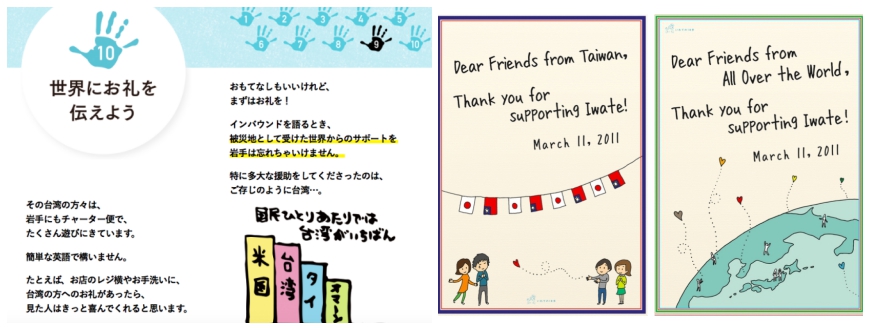 1
2
3
4
5
6
7
8
9
10
10
世界にお礼を
伝えよう
その台湾の方々は、
岩手にもチャーター便で、
たくさん遊びにきています。
簡単な英語で構いません。
たとえば、お店のレジ横やお手洗いに、
台湾の方へのお礼があったら、
見た人はきっと喜んでくれると思います。
おもてなしもいいけれど、
まずはお礼を！
インバウンドを語るとき、
被災地として受けた世界からのサポートを
岩手は忘れちゃいけません。
特に多大な援助をしてくださったのは、
ご存じのように台湾…。
国民ひとりあたりでは
台湾がいちばん
米国
台湾
タイ
オマーン
Dear Friends from Taiwan,
Thank you for
supporting Iwate!
March 11, 2011
Dear Friends from
All Over the World,
Thank you for
supporting Iwate!
March 11, 2011